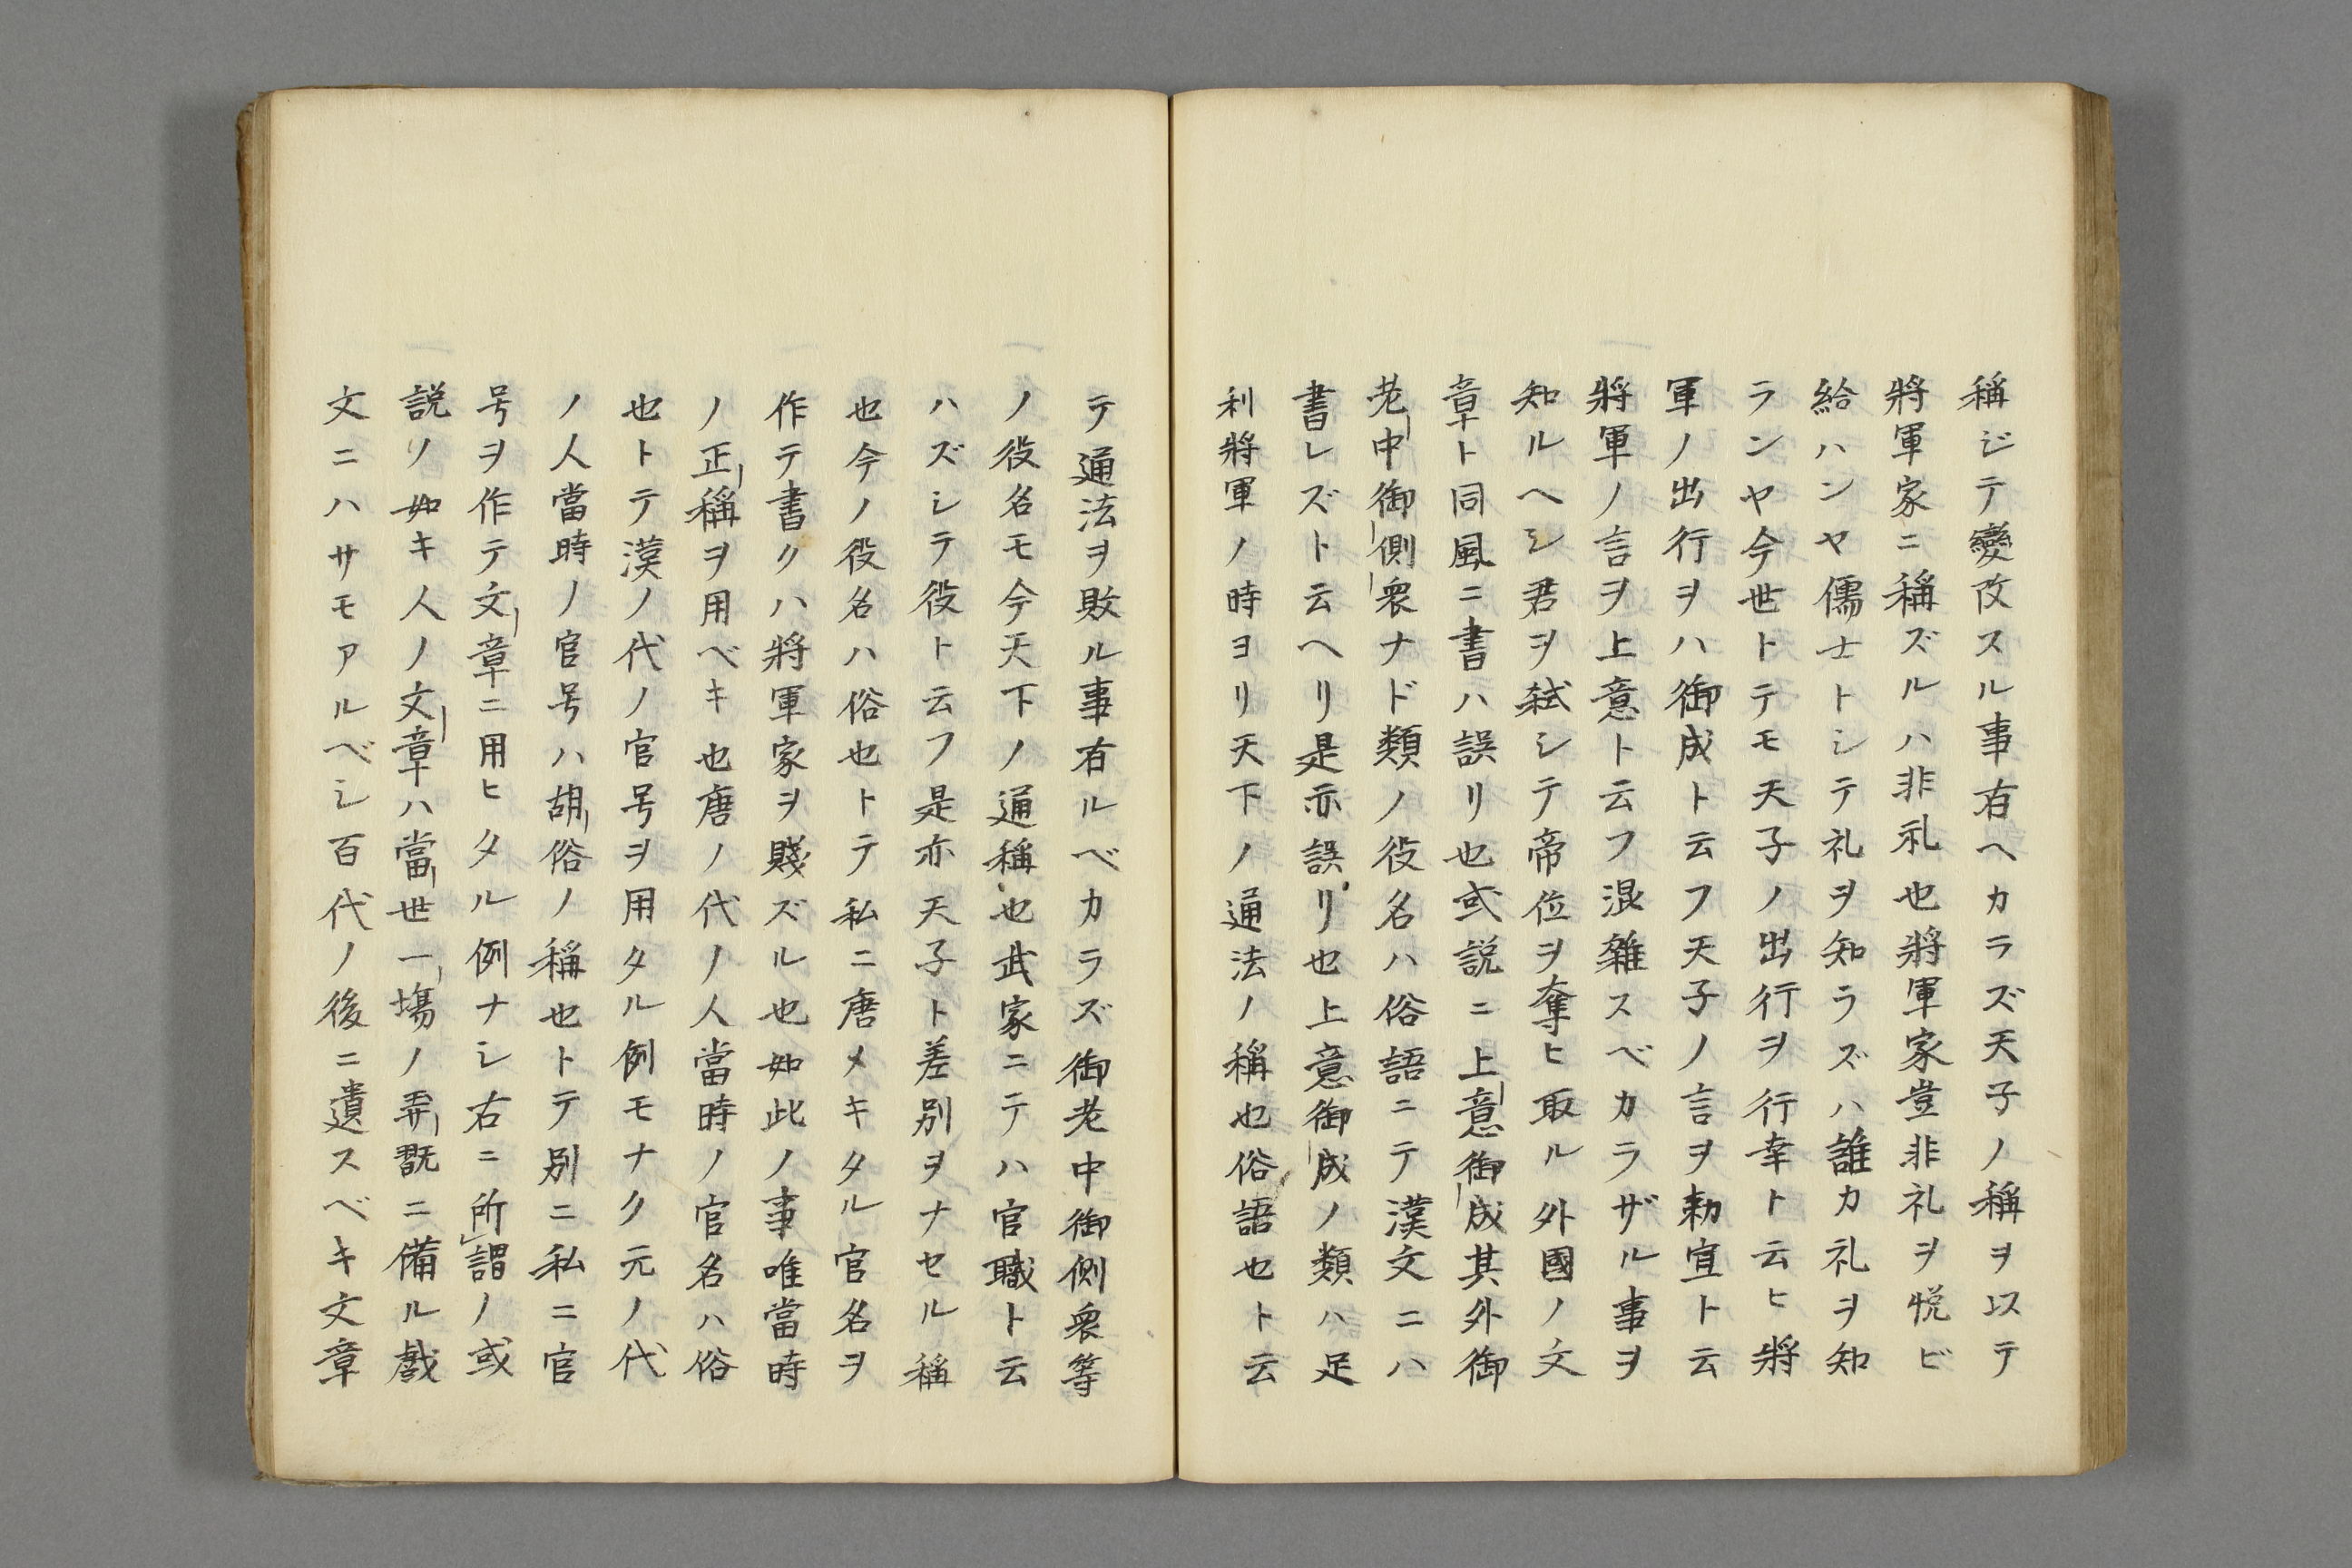 稱ジテ變改スル事有ヘカラズ天子ノ稱ヲ以テ
將軍家ニ稱ズルハ非礼也將軍家豈非礼ヲ悦ビ
給ハンヤ儒士トシテ礼ヲ知ラズハ誰カ礼ヲ知
ランヤ今世トテモ天子ノ出行ヲ行幸ト云ヒ將
軍ノ出行ヲハ御成ト云フ天子ノ言ヲ勅宣ト云
將軍ノ言ヲ上意ト云フ混雜スベカラザル事ヲ
知ルヘシ君ヲ弑シテ帝位ヲ奪ヒ取ル外國ノ文
章ト同風ニ書ハ誤リ也或説ニ上意御成其外御
老中御側衆ナド類ノ役名ハ俗語ニテ漢文ニハ
書レズト云ヘリ是亦誤リ也上意御成ノ類ハ足
利將軍ノ時ヨリ天下ノ通法ノ稱也俗語也ト云
テ通法ヲ敗ル事有ルベカラズ御老中御側衆等
ノ役名モ今天下ノ通稱也武家ニテハ官職ト云
ハズシテ役ト云フ是亦天子ト差別ヲナセル稱
也今ノ役名ハ俗也トテ私ニ唐メキタル官名ヲ
作テ書クハ將軍家ヲ賤ズル也如此ノ事唯當時
ノ正稱ヲ用ベキ也唐ノ代ノ人當時ノ官名ハ俗
也トテ漢ノ代ノ官号ヲ用タル例モナク元ノ代
ノ人當時ノ官号ハ胡俗ノ稱也トテ別ニ私ニ官
号ヲ作テ文章ニ用ヒタル例ナシ右ニ所謂ノ或
説ノ如キ人ノ文章ハ當世一塲ノ弄翫ニ備ル戲
文ニハサモアルベシ百代ノ後ニ遺スベキ文章